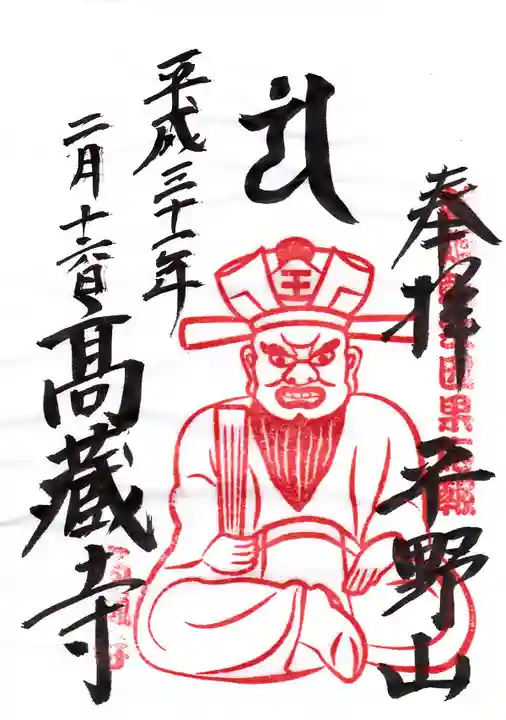 奉拝 平野山
王
平成三十一年
二月十六日
高蔵寺